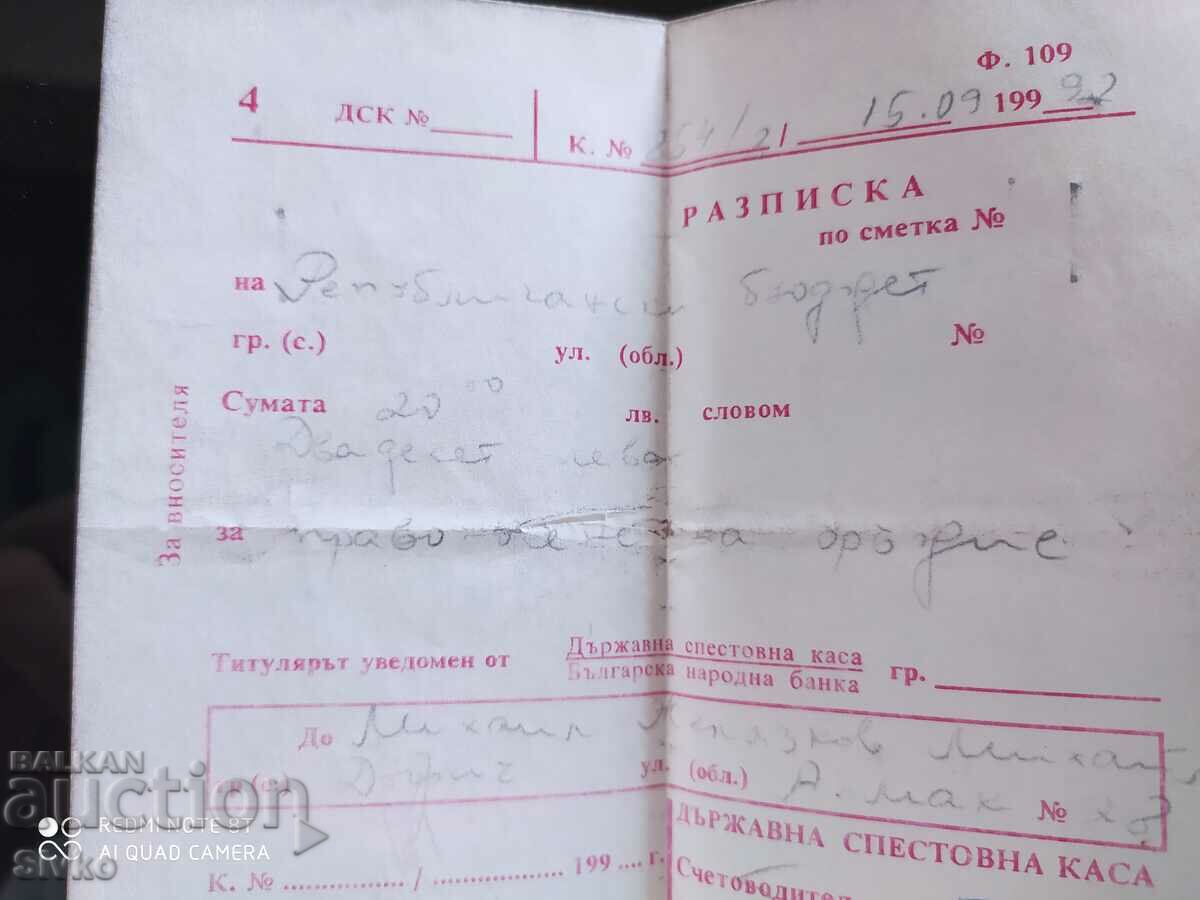 Ф. 109
4 ДСК № К. № 254/21 15.09 199 92
РАЗПИСКА
по сметка №
на Републикански бюджет
гр. (с.) ул. (обл.) №
Сумата 20 00 лв. словом
Двадесет лева
за право оръжие
За вносителя
Титулярът уведомен от Държавна спестовна каса гр.
Българска народна банка
До Михаил
гр. (с.) Добрич ул. (обл.) А. мак №
ДЪРЖАВНА СПЕСТОВНА КАСА
К. № / 199 .... г. Счетоводител
BALKAN
auction
REDMI NOTE 8T
AI QUAD CAMERA
sivko